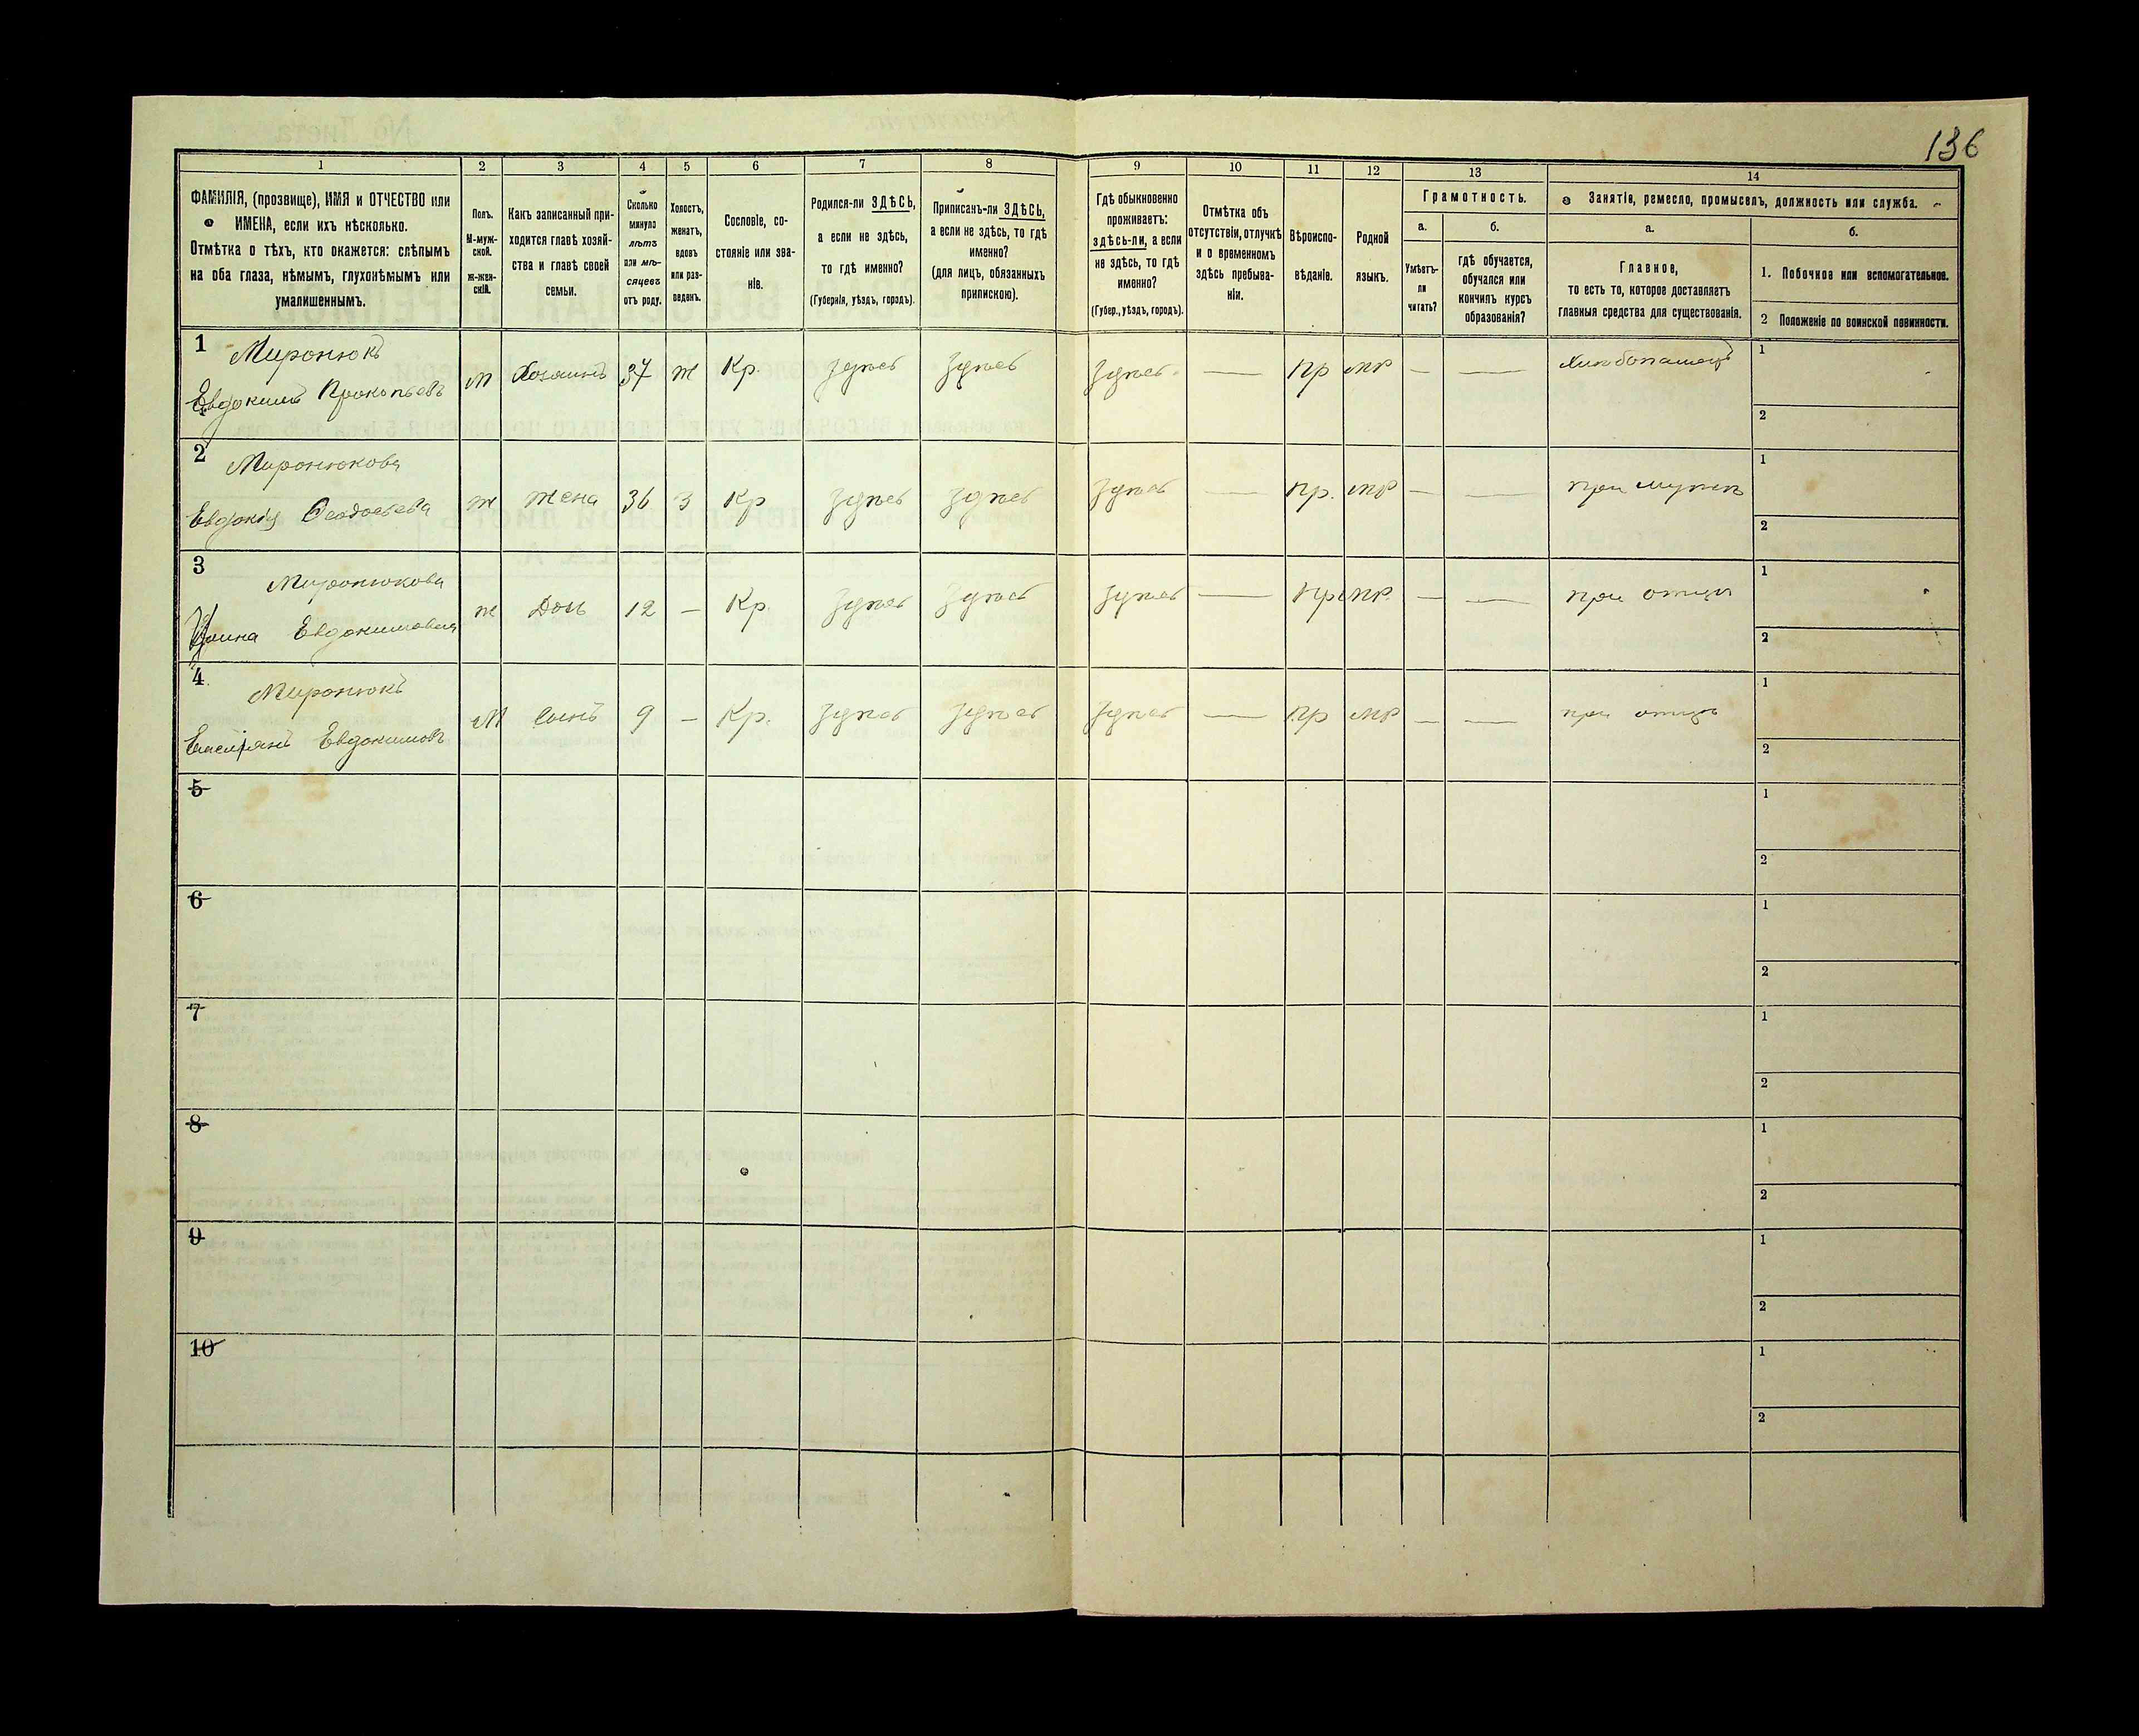 136
1
2
3
4
5
6
7
8
9
10
11
12
13
14
ФАМИЛІЯ, (прозвище), ИМЯ и ОТЧЕСТВО или
ИМЕНА, если ихъ нѣсколько.
Отмѣтка о тѣхъ, кто окажется: слѣпымъ
на оба глаза, нѣмымъ, глухонѣмымъ или
умалишеннымъ.
Полъ.
М-муж-
ской.
ж-жен-
скій.
Какъ записанный при-
ходится главѣ хозяй-
ства и главѣ своей
семьи.
Сколько
минуло
лѣтъ
или мѣ-
сяцевъ
отъ роду.
Холостъ,
женатъ,
вдовъ
или раз-
веденъ.
Сословіе, со-
стояніе или зва-
ніе.
Родился-ли ЗДѢСЬ,
а если не здѣсь,
то гдѣ именно?
(Губернія, уѣздъ, городъ).
Приписанъ-ли ЗДѢСЬ,
а если не здѣсь, то гдѣ
именно?
(для лицъ, обязанныхъ
припискою).
Гдѣ обыкновенно
проживаетъ:
здѣсь-ли, а если
не здѣсь, то гдѣ
именно?
(Губер., уѣздъ, городъ).
Отмѣтка объ
отсутствіи, отлучкѣ
и о временномъ
здѣсь пребыва-
ніи.
Вѣроиспо-
вѣданіе.
Родной
языкъ.
Грамотность.
а.
Умѣетъ-
ли
читать?
б.
гдѣ обучается,
обучался или
кончилъ курсъ
образованія?
Занятіе, ремесло, промыселъ, должность или служба.
а.
Главное,
то есть то, которое доставляетъ
главныя средства для существованія.
б.
1. Побочное или вспомогательное.
2 Положеніе по воинской повинности.
1 Миронюкъ
Евдокимъ Прокопьевъ М Хозяинъ 37 ж Кр. Здѣсь Здѣсь Здѣсь — Пр мр — — Хлѣбопашецъ 1
2
2 Миронюкова
Евдокія Феодосьева ж жена 36 з Кр Здѣсь Здѣсь Здѣсь — Пр. мр — — при мужѣ 1
2
3 Миронюкова
Евдокимовна ж Дочь 12 — Кр. Здѣсь Здѣсь Здѣсь — Пр мр. — — при отцѣ 1
2
4 Миронюкъ
Евдокимовъ М Сынъ 9 — Кр. Здѣсь Здѣсь Здѣсь — Пр мр — — при отцѣ 1
2
5 1
2
6 1
2
7 1
2
8 1
2
9 1
2
10 1
2